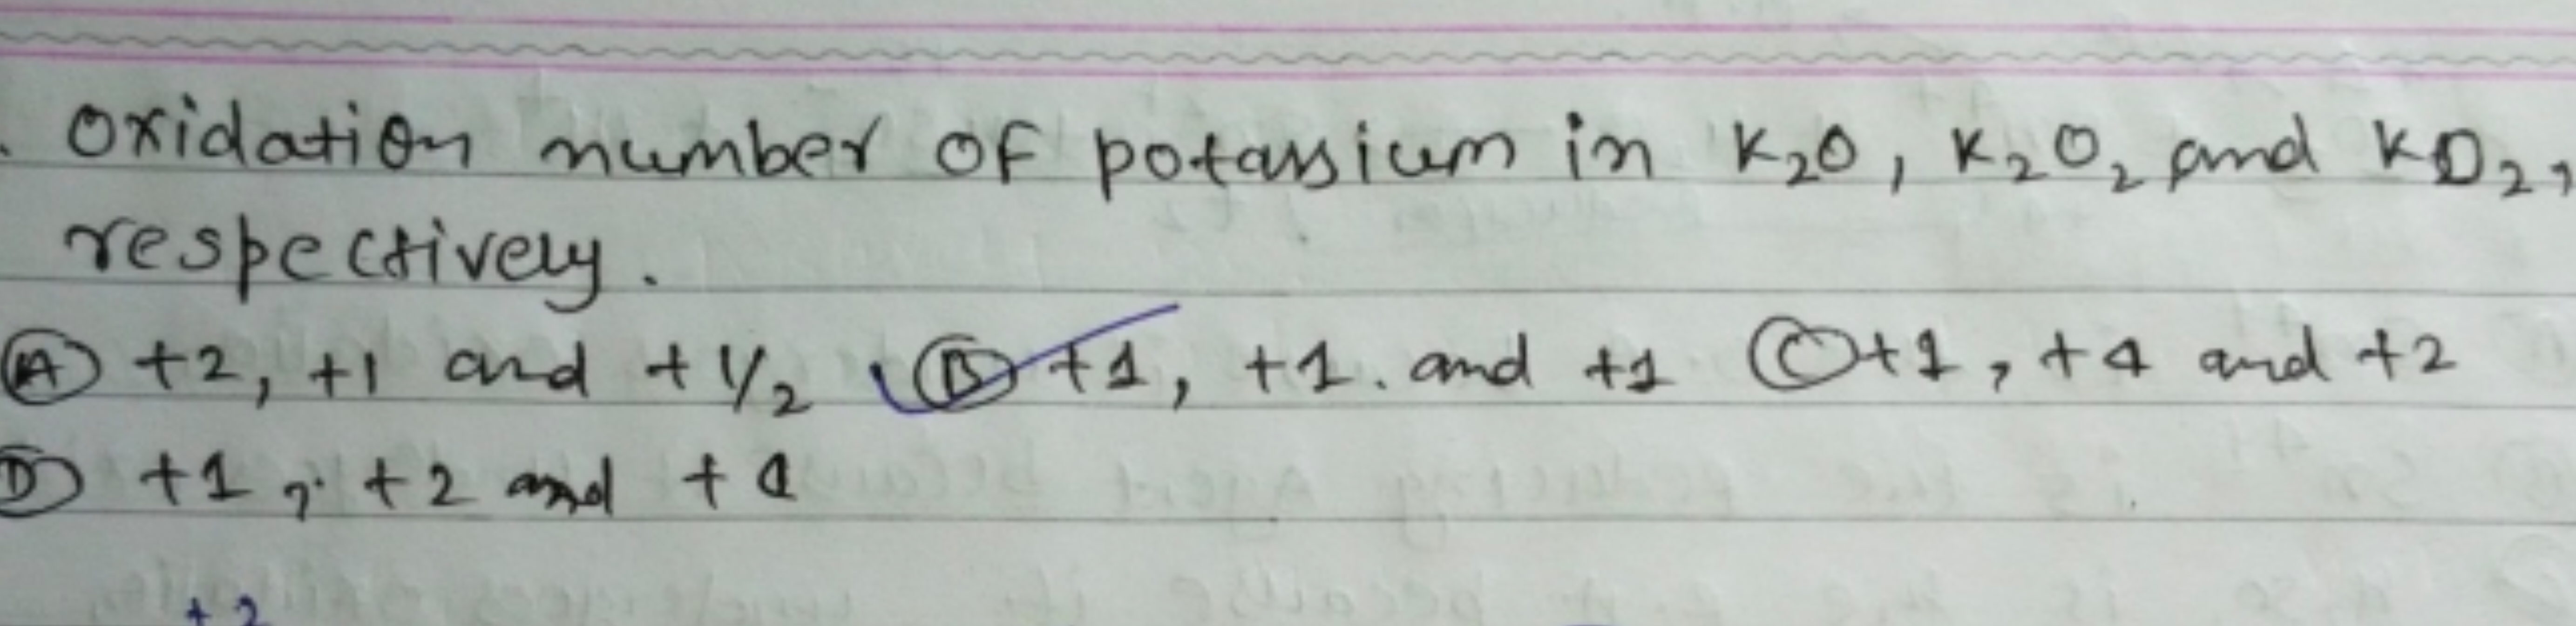 . Oxidation number of potassium in K₂O, K₂O₂ and KO₂,
respectively.
(A) +2, +1 and +1/2 (B) +1, +1. and +1 (C) +1, +4 and +2
(D) +1, +2 and +4
+2